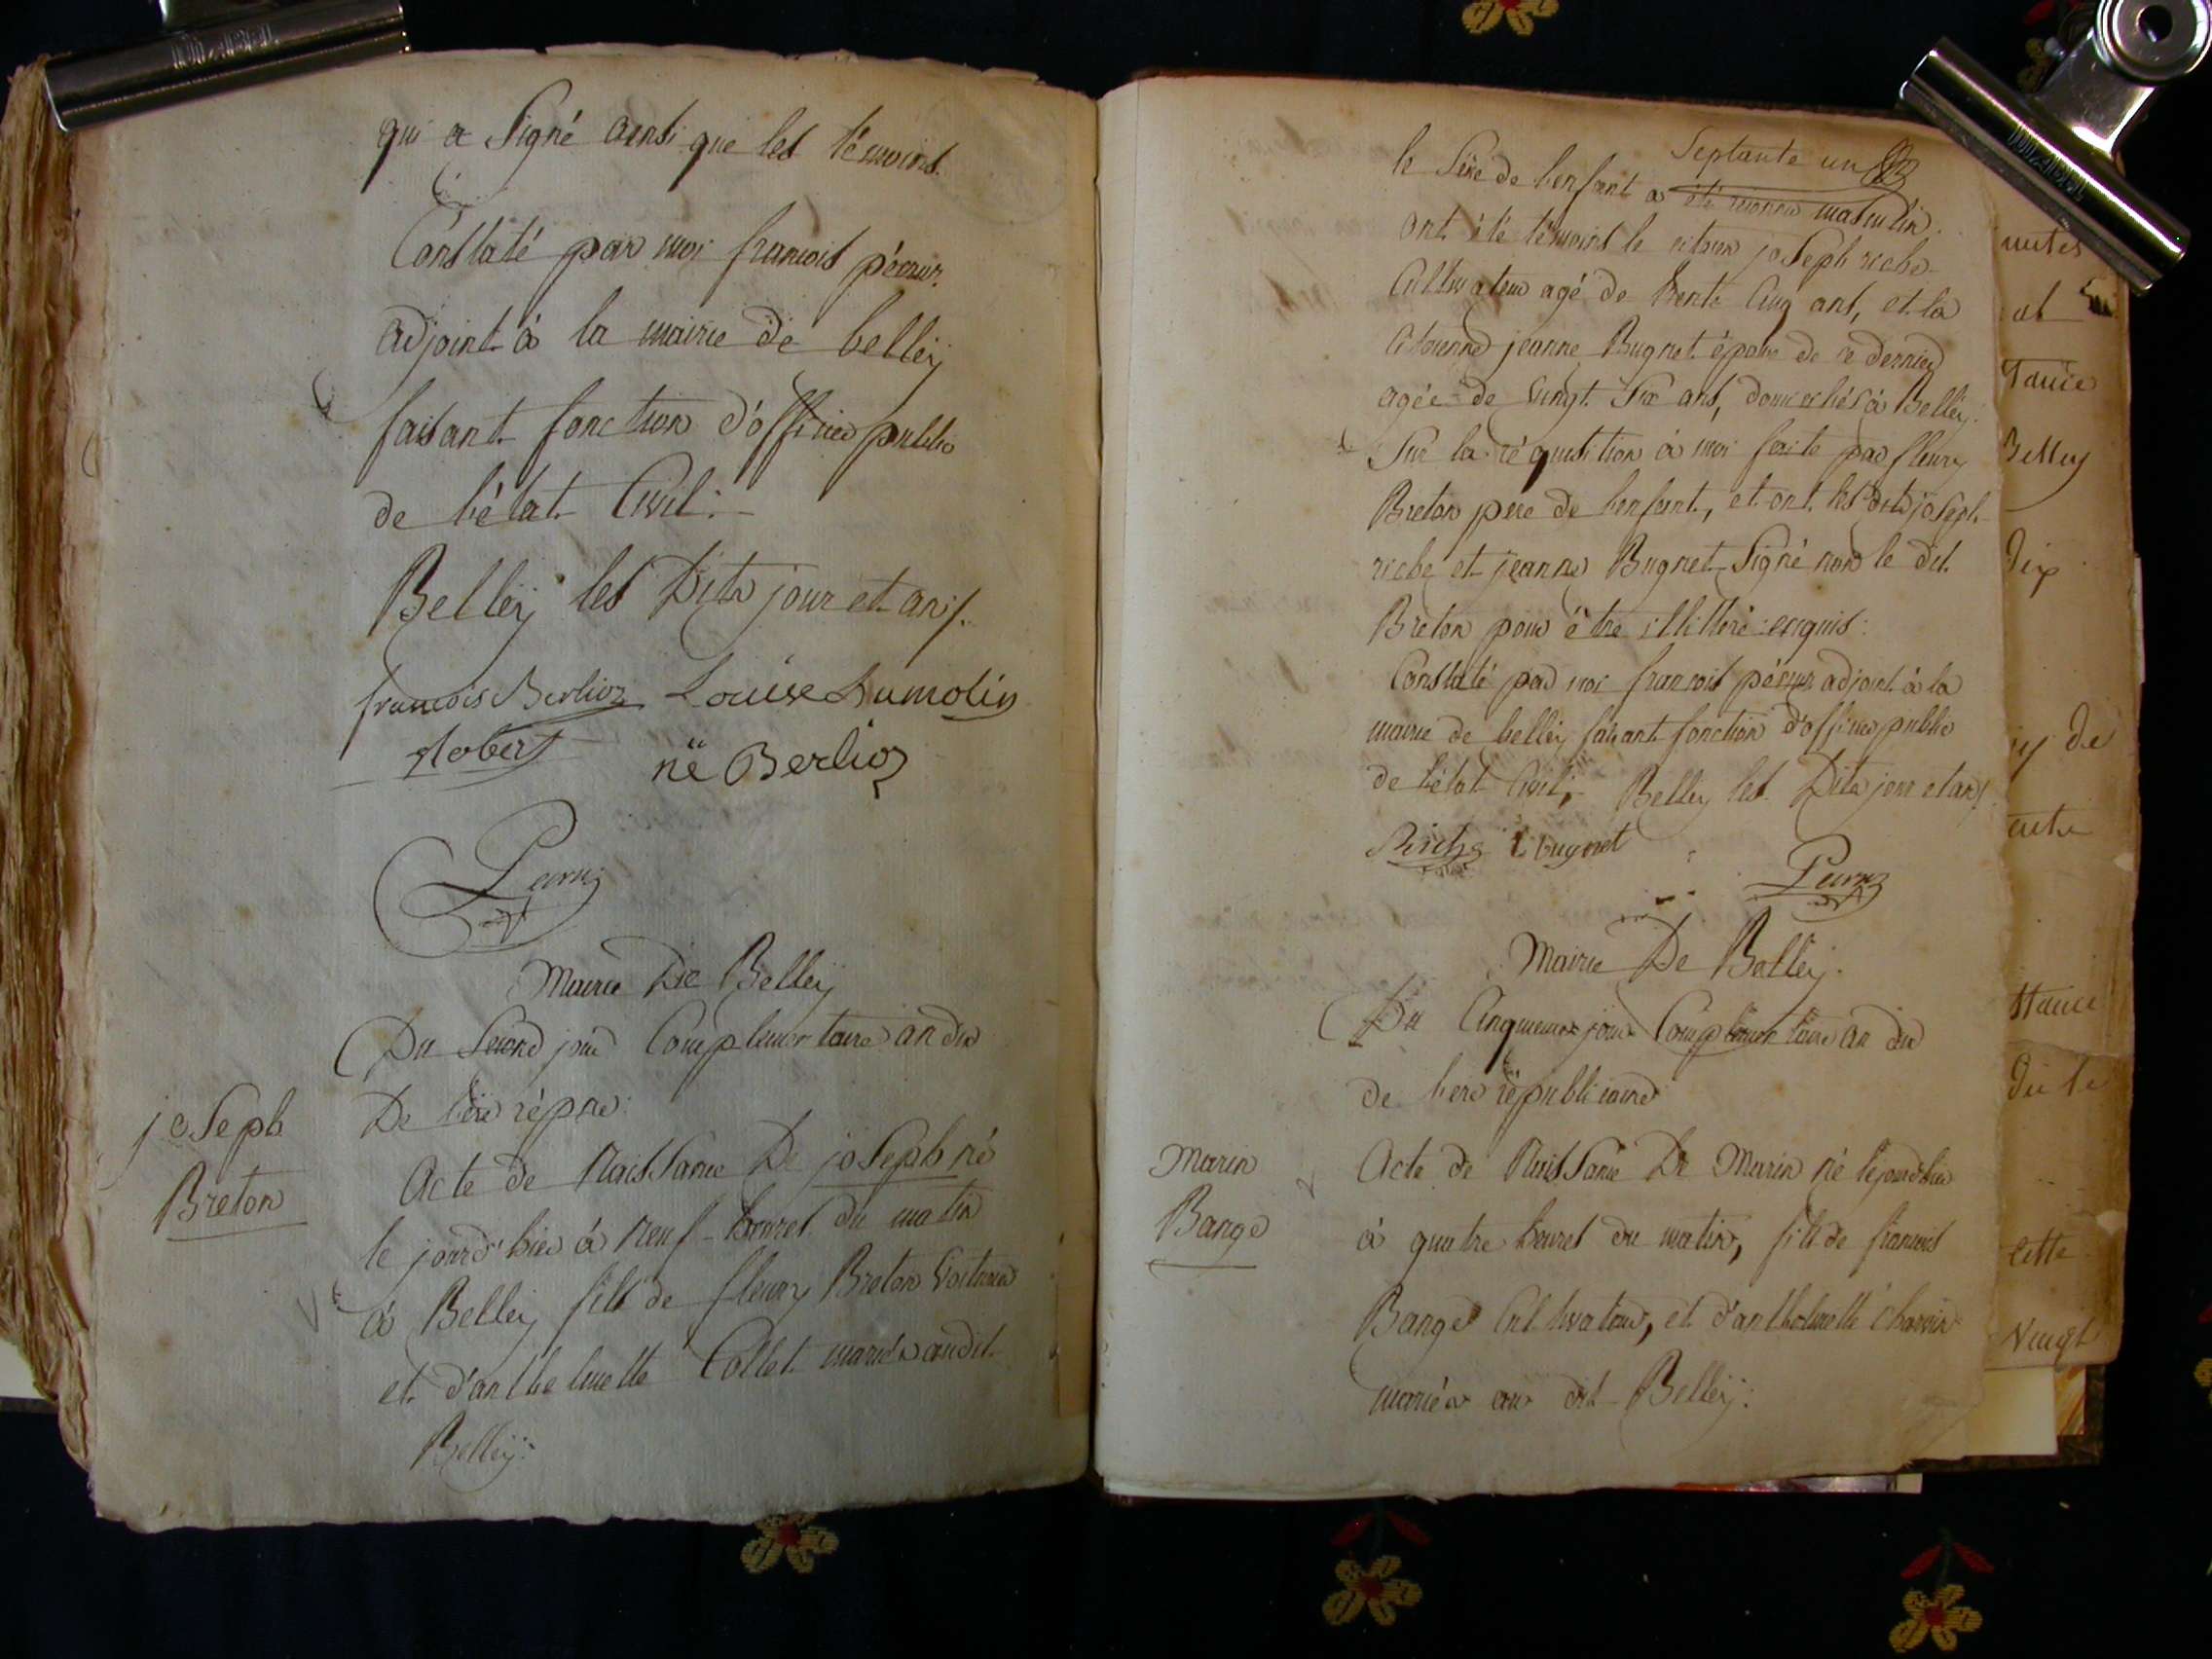 qui a Signé ainsi que les témoins.
Constaté par moi francois pécour
adjoint à la mairie de belleÿ
faisant fonction d'officier public
de l'état Civil:
Belleÿ les Dits jour et an /.
francois Berlioz Louise Dumolin
né Berlioz
Mairie De Belleÿ
Du Second jour Complementaire an dix
De l'ère répne:
joSeph
Breton
Acte de NaisSance De joSeph né
le jourd'hier à neuf heures du matin
à Belleÿ fils de fleury Breton Voiturier
et d'anthelmette Collet mariés audit
Belleÿ:
Septante un
le Sexe de l'enfant a été reconnu masculin.
ont été témoins le citoien joSeph riche
Cultivateur agé de trente Cinq ans, et la
Citoienne jeanne Bugnet épouse de ce dernier
agée de Vingt Six ans, domiciliés à Belleÿ.
Sur la réquisition à moi faite par fleury
Breton pere de l'enfant, et ont les dits joSeph
riche et jeanne Bugnet Signé non le dit
Breton pour être illittéré enquis:
Constaté par moi francois pécour adjoint à la
mairie de belleÿ faisant fonction d'officier public
de l'état Civil, Belleÿ les Dits jour et an /.
Riche Bugnet
Mairie De Belleÿ.
Du Cinquieme jour Complémentaire an dix
de l'ere républicaine
Marin
Bange
Acte de NaisSance De Marin né lejourdhui
à quatre heures du matin, fils de francois
Bange Cultivateur, et d'anthelmette Charvin
mariés au dit Belleÿ:
nutes
et
Belley
dix
de
du le
cette
Vingt